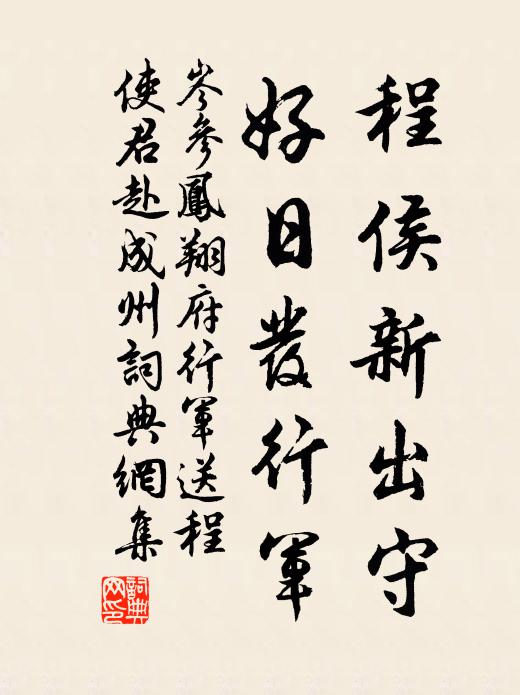 程侯新出守
好日發行軍
岑參鳳翔府行軍送程
使君赴成州詞典網集
詞典
网印